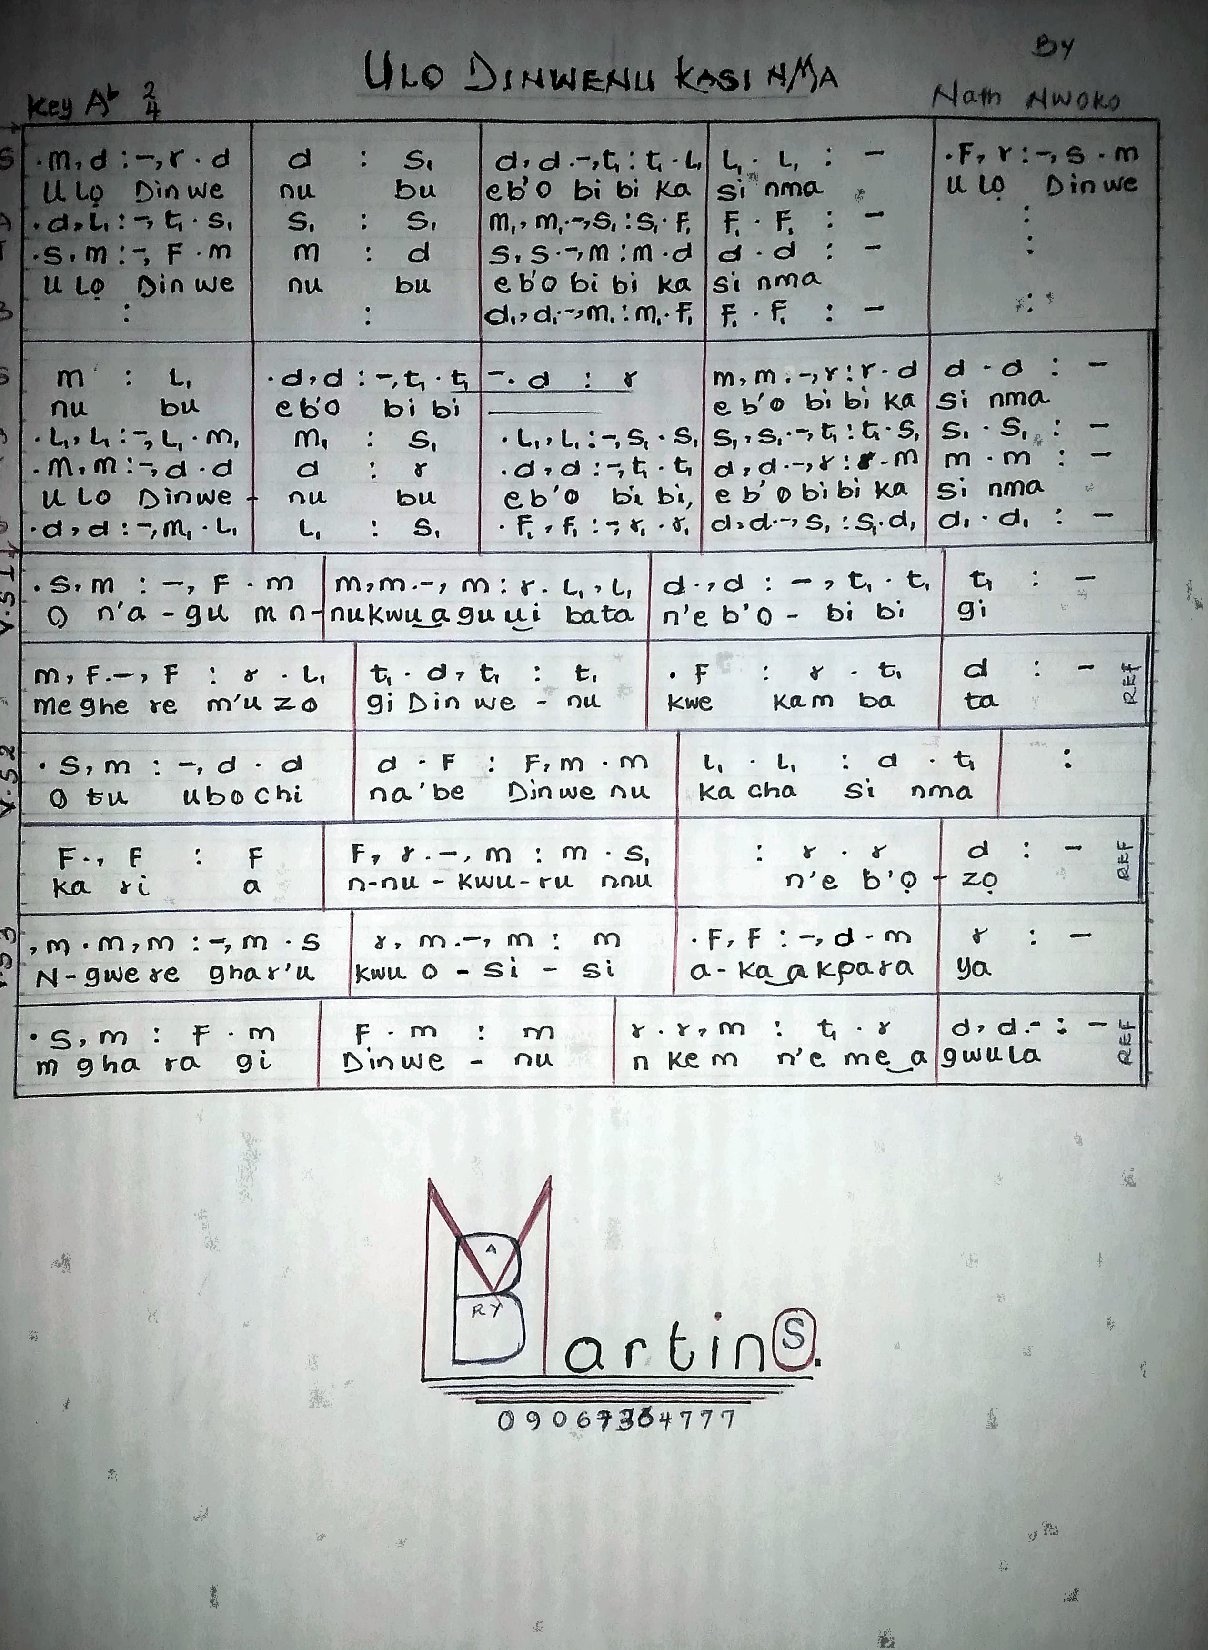 ULO DINWENU KASI NMA
By
Key A♭ 2/4
Nath NWOKO
S .m,d :-,r.d | d : s₁ | d,d.-,t₁:t₁.L₁ | L₁.L₁ : - | .F,r:-,s.m
U Lọ Dinwe nu bu eb'o bi bi ka si nma U Lọ Dinwe
A .d,L₁:-,t₁.s₁ | s₁ : s₁ | m₁,m₁.-,s₁:s₁.F₁ | F₁.F₁ : - | :
T .s,m:-,F.m | m : d | s,s.-,m:m.d | d.d : - | :
U Lọ Dinwe nu bu eb'o bi bi ka si nma
B : | : | d₁,d₁.-,m₁:m₁.F₁ | F₁.F₁ : - | :
S m : L₁ | .d,d:-,t₁.t₁ | -.d : r | m,m.-,r:r.d | d.d : -
nu bu eb'o bi bi e b'o bi bi ka si nma
.L₁,L₁:-,L₁.m₁ | m₁ : s₁ | .L₁,L₁:-,s₁.s₁ | s₁,s₁.-,t₁:t₁.s₁ | s₁.s₁ : -
.m,m:-,d.d | d : r | .d,d:-,t₁.t₁ | d,d.-,r:r.m | m.m : -
U Lo Dinwe - nu bu eb'o bi bi, e b'o bi bi ka si nma
.d,d:-,m₁.L₁ | L₁ : s₁ | .F₁,F₁:-,r₁.r₁ | d,d.-,s₁:s₁.d₁ | d₁.d₁ : -
V.S1 .s,m : -,F.m | m,m.-,m:r.L₁,L₁ | d.,d : -,t₁.t₁ | t₁ : -
O n'a - gu m n- nukwu‿agu‿ụi bata n'e b'o - bi bi gi
m,F.-,F : r.L₁ | t₁.d,t₁ : t₁ | .F : r.t₁ | d : - REF
meghe re m'u zo gi Dinwe - nu kwe kam ba ta
V.S2 .s,m : -,d.d | d.F : F,m.m | L₁.L₁ : d.t₁ | :
O tu ubochi na'be Dinwe nu ka cha si nma
F.,F : F | F,r.-,m : m.s₁ | : r.r | d : - REF
ka ri a n-nu - kwu-ru nnu n'e b'ọ - zọ
V.S3 ,m.m,m :-,m.s | r,m.-,m : m | .F,F:-,d.m | r : -
N-gwere ghar'u kwu o - si - si a-ka‿akpara ya
.s,m : F.m | F.m : m | r.r,m : t₁.r | d,d.- : - REF
m gha ra gi Dinwe - nu n kem n'e me‿a gwula
MBARY
artinS.